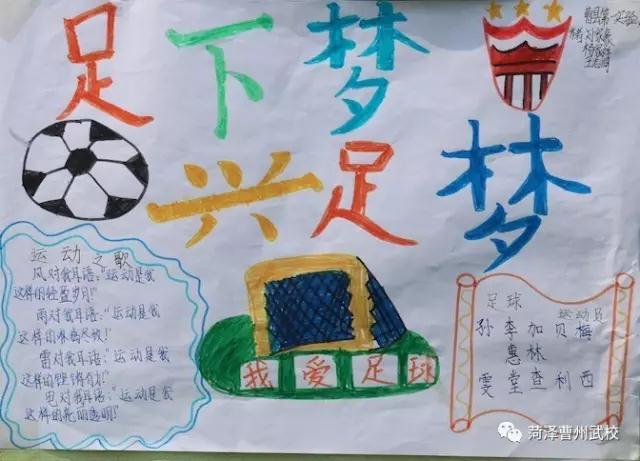 足下梦
兴足梦
曹县第一实验
运动之歌
风对我耳语:“运动是我
这样的轻盈岁月!”
雨对我耳语:“运动是我
这样的淋漓尽致!”
雷对我耳语:“运动是我
这样的铿锵有力!”
电对我耳语:“运动是我
这样的亮丽透明!”
我爱足球
足球
运动员
孙 李 加 贝 梅
惠 林
雯 堂 查 利 西
菏泽曹州武校